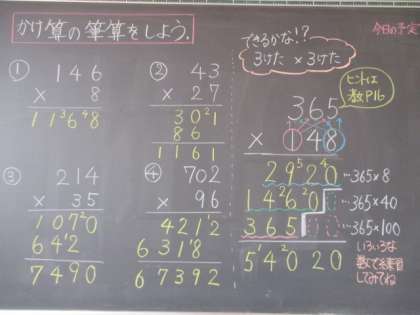 かけ算の筆算をしよう.
① 146
× 8
11³6⁴8
② 43
× 27
30²1
86
1161
③ 214
× 35
107²0
64¹2
7490
④ 702
× 96
421¹2
631¹8
67392
今日の予定
できるかな!?
3けた × 3けた
ヒントは
教P16
365
× 148
29⁵2⁴0 …365×8
14²6²0 …365×40
365 …365×100
5¹4²020
いろいろな
数で練習
してみてね